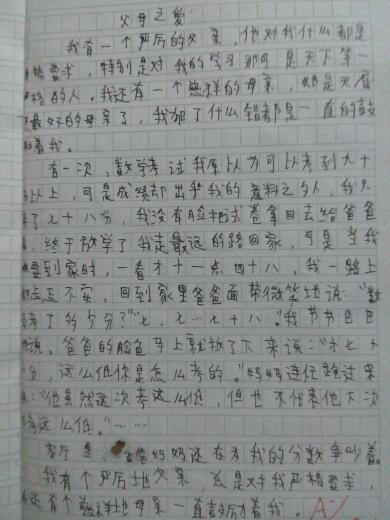 父母之爱
我有一个严厉的父亲,他对我什么都是
格要求,特别是对我的学习那可是天下第一
严格的人。我还有一个慈祥的母亲,她是天底
最好的母亲了,我都了什么错都是一直的鼓
着我。
有一次,数学考试我原以为可以考到九十
以上,可是成绩却出乎我的意料之外,我只
了七十八分,我没有脸把试卷拿回去给爸爸
,终于放学了我走最远的路回家,可是当我
要到家时,一看才十一点四十八,我一路上
忐忑不安,回到家里爸爸面带微笑地说:"数
考了多少分?""七、七…七十八。"我节节巴巴
说。爸爸的脸色马上就拉了下来说:"才七十
分,这么低你是怎么考的。"妈妈连忙跑过来
:"他虽然这次考这么低,但也不代表他下次
考这么低。"……
客厅里 爸爸妈妈还在为我的分数争吵着。
我有个严厉地父亲,总是对我严格要求,
还有个慈祥地母亲一直鼓厉着我。 A-